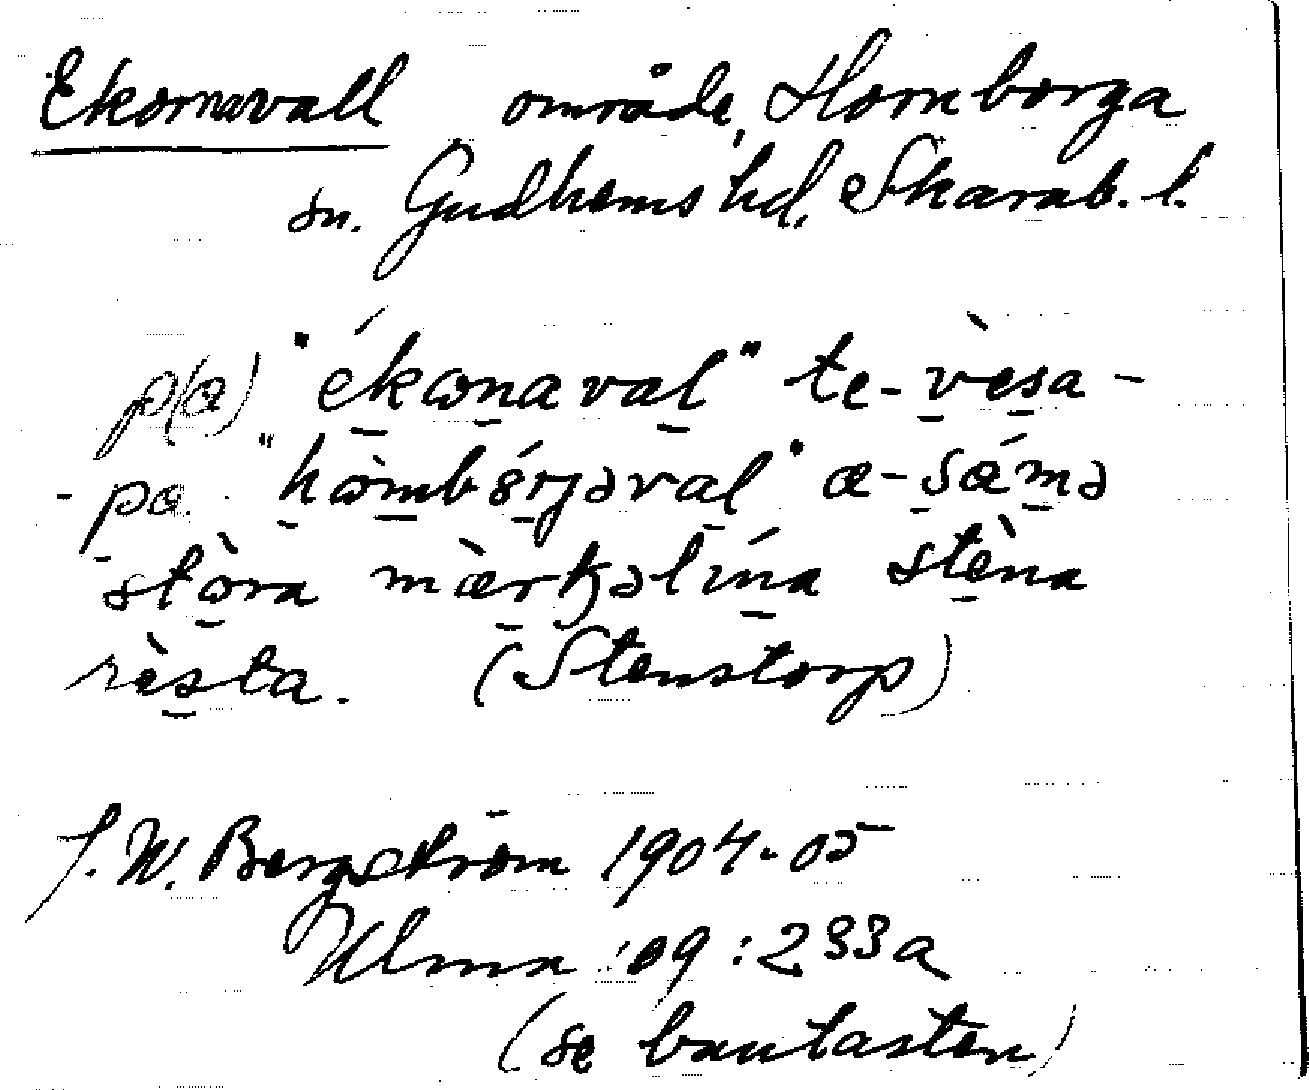 Ekornavall område, Hornborga
sn. Gudhems hd, Skarab. l.
p(a) "ékɷnaval" te-vèsa-
-pa "hɷ̀mbórjəval" æ-sámə
stɷ̀ra mærkəlína stèna
rèsta. (Stenstorp)
J. W. Bergström 1904-05
Ulma 109:233a
(se bautasten)